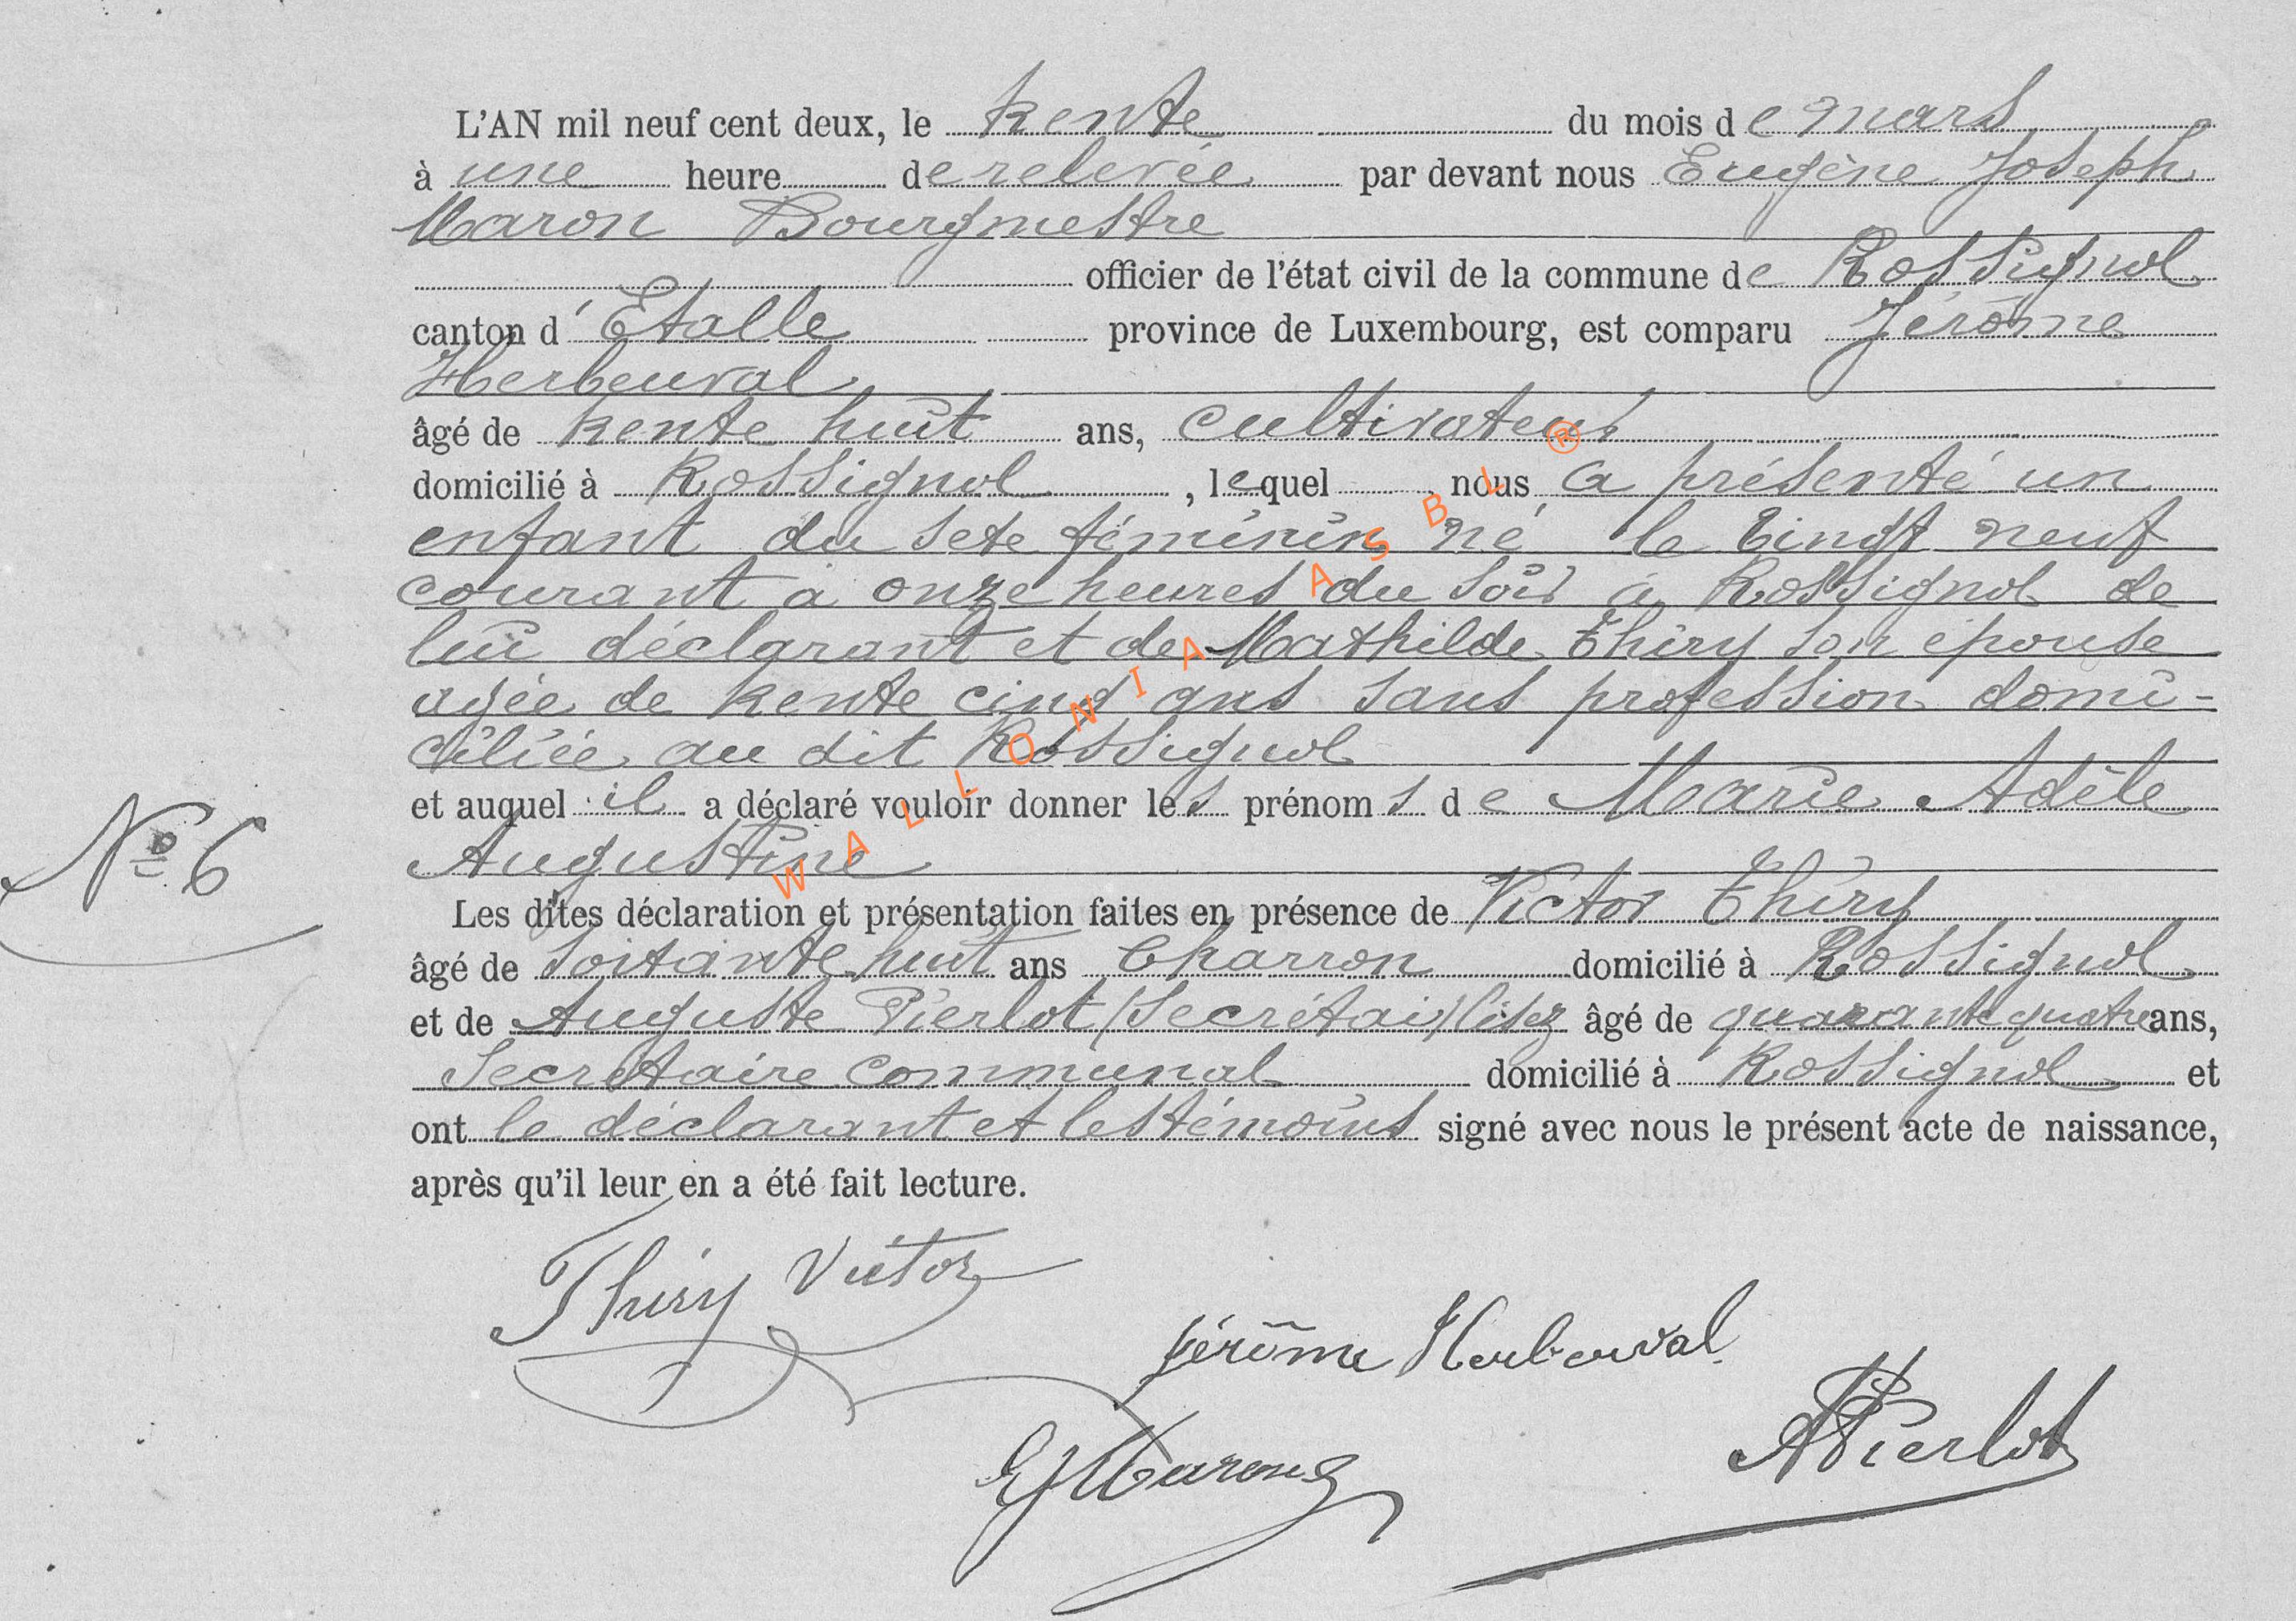 L'AN mil neuf cent deux, le trente du mois de mars
à une heure de relevée par devant nous Eugène Joseph
Maron Bourgmestre
officier de l'état civil de la commune de Rossignol
canton d'Etalle province de Luxembourg, est comparu Jérôme
Herbeuval
âgé de trente huit ans, cultivateur
domicilié à Rossignol, lequel nous a présenté un
enfant du sexe féminin né le vingt neuf
courant à onze heures du soir à Rossignol de
lui déclarant et de Mathilde Thiry son épouse
agée de trente cinq ans sans profession domi-
ciliée au dit Rossignol
et auquel il a déclaré vouloir donner les prénoms de Marie Adèle
Augustine
N° 6
Les dites déclaration et présentation faites en présence de Victor Thiry
âgé de soixante huit ans Charron domicilié à Rossignol
et de Auguste Pierlot (Secrétair) lisez âgé de quarante quatre ans,
Secrétaire communal domicilié à Rossignol et
ont le déclarant et les témoins signé avec nous le présent acte de naissance,
après qu'il leur en a été fait lecture.
Thiry Victor
Jérôme Herbeuval
EJMaron
APierlot
WALLONIA ASBL ®